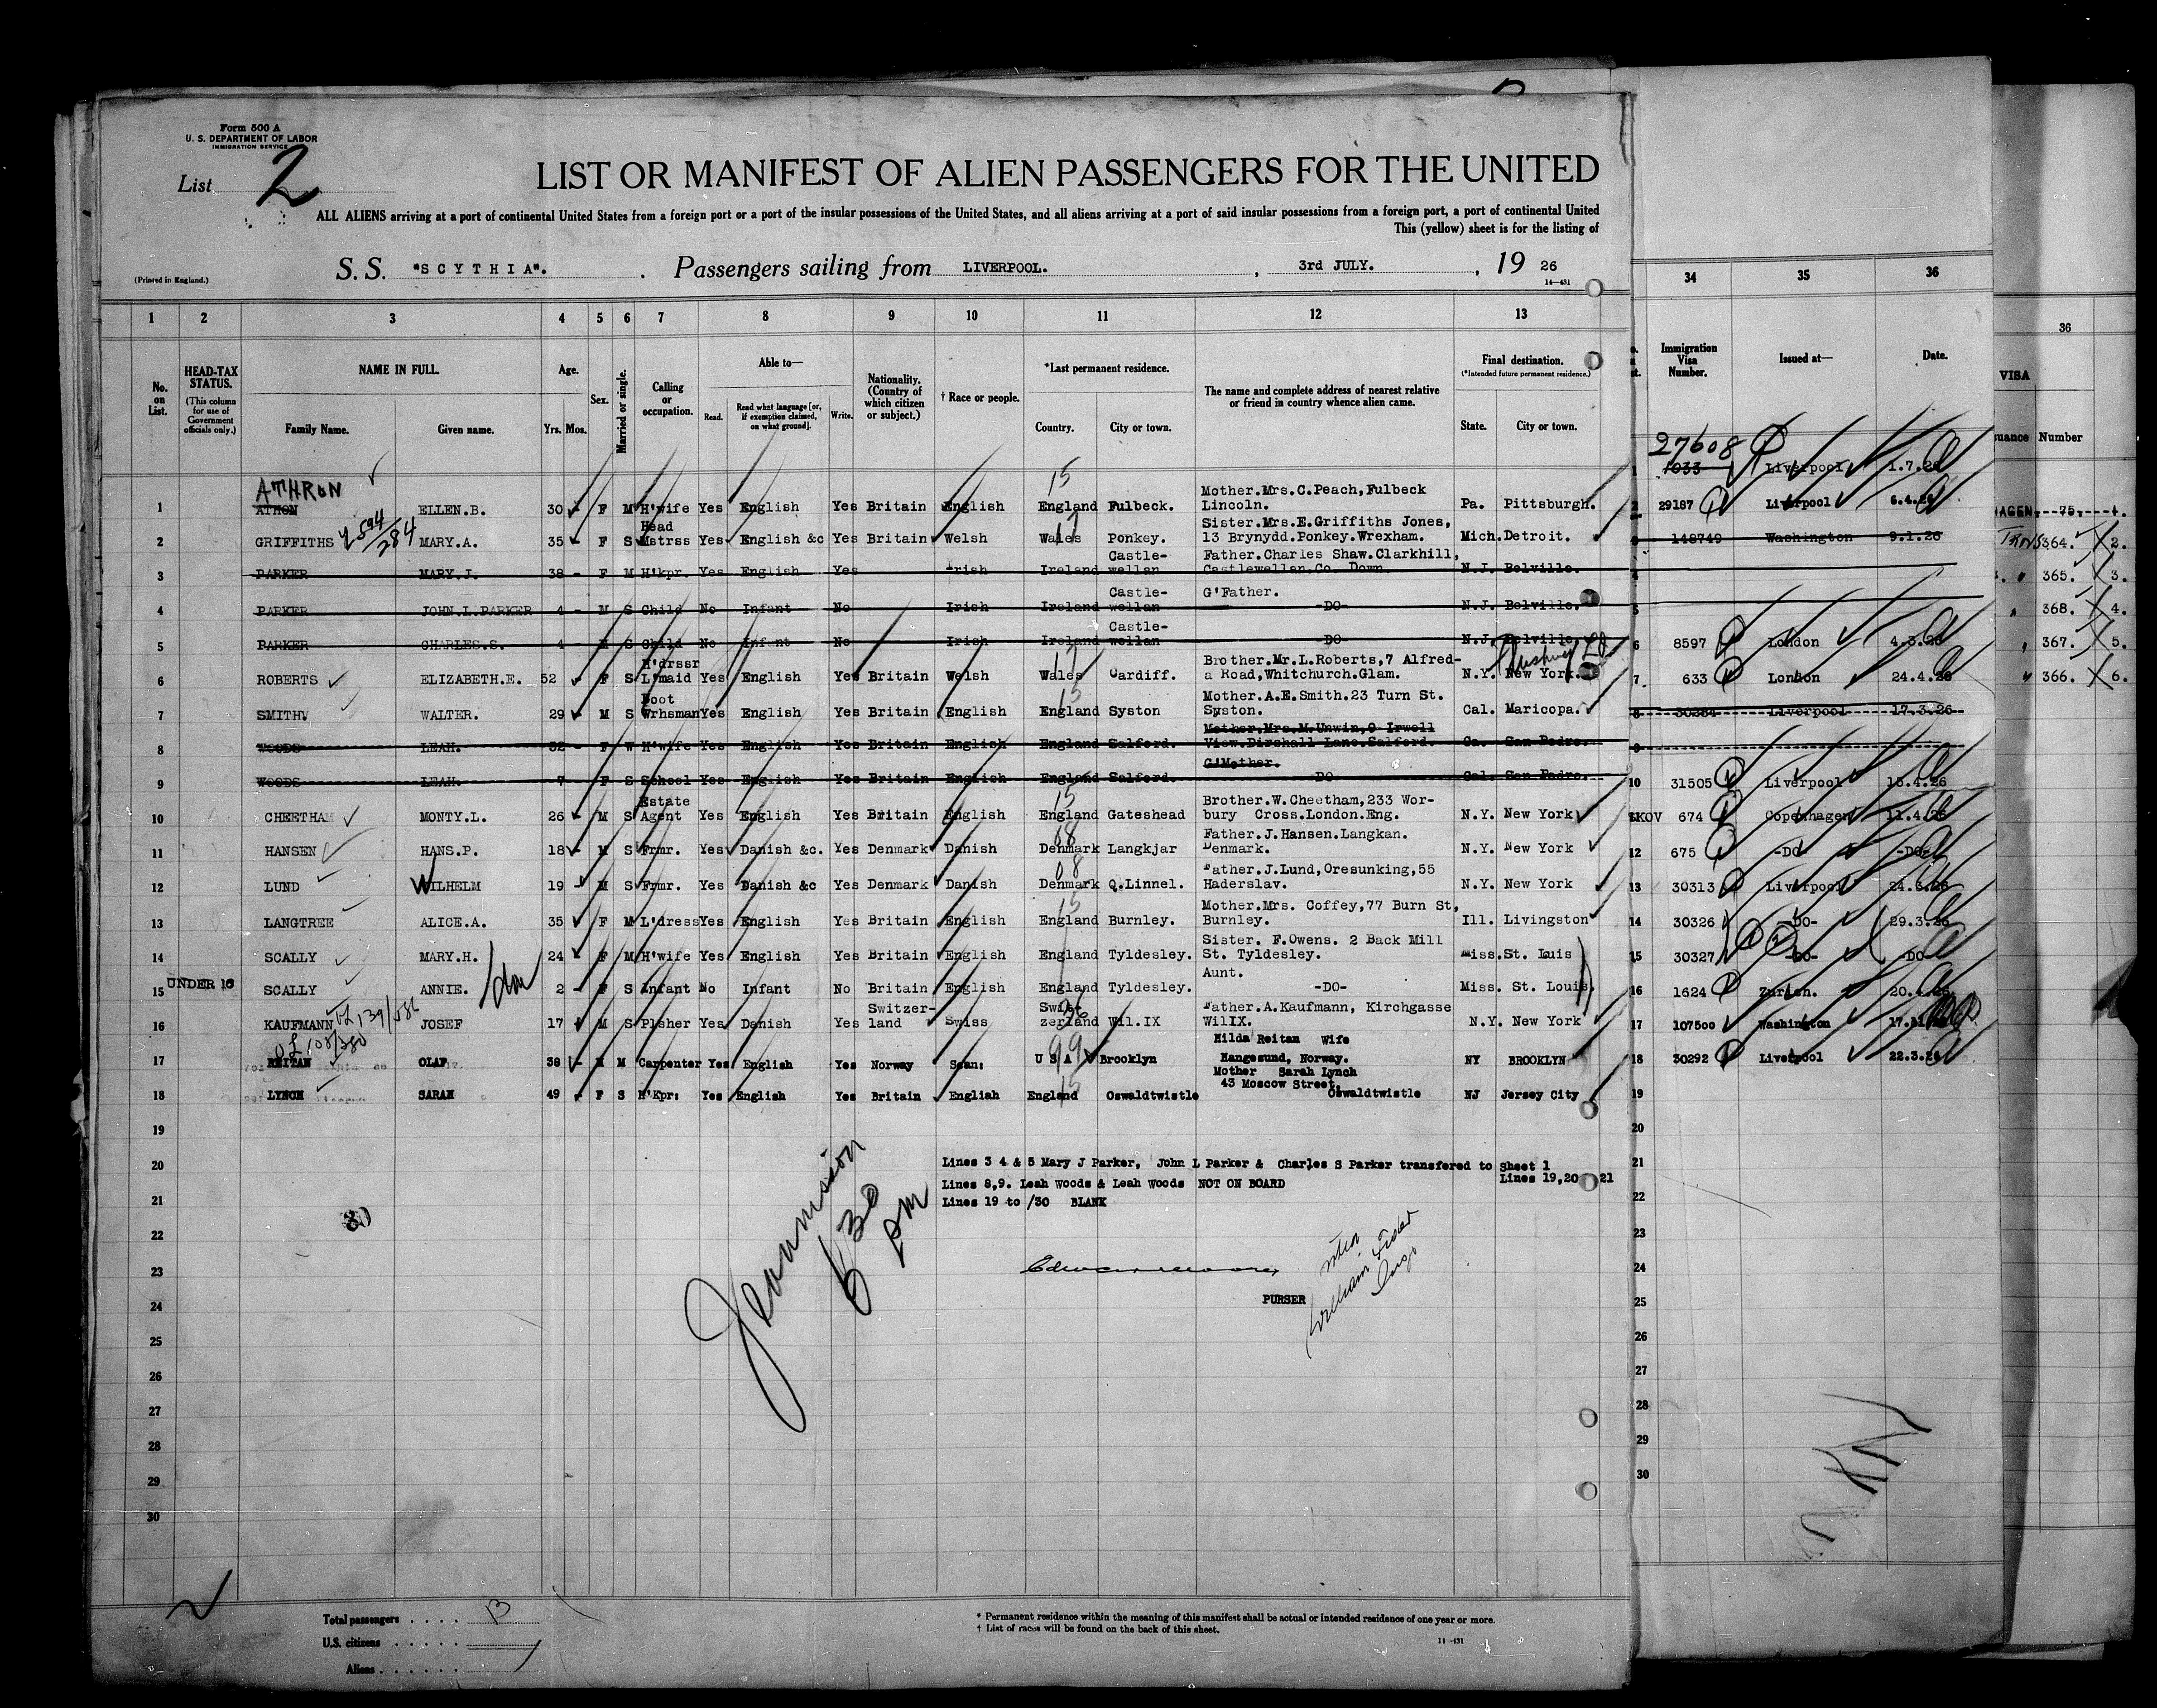 Form 500 A
U. S. DEPARTMENT OF LABOR
IMMIGRATION SERVICE
List 2
LIST OR MANIFEST OF ALIEN PASSENGERS FOR THE UNITED
ALL ALIENS arriving at a port of continental United States from a foreign port or a port of the insular possessions of the United States, and all aliens arriving at a port of said insular possessions from a foreign port, a port of continental United
This (yellow) sheet is for the listing of
(Printed in England.)
S. S. "SCYTHIA". Passengers sailing from LIVERPOOL. , 3rd JULY. , 19 26
14—431
1 2 3 4 5 6 7 8 9 10 11 12 13 34 35 36
No. on List.
HEAD-TAX STATUS. (This column for use of Government officials only.)
NAME IN FULL.
Family Name. Given name.
Age. Yrs. Mos.
Sex.
Married or single.
Calling or occupation.
Able to—
Read. Read what language [or, if exemption claimed, on what ground]. Write.
Nationality. (Country of which citizen or subject.)
† Race or people.
*Last permanent residence.
Country. City or town.
The name and complete address of nearest relative or friend in country whence alien came.
Final destination.
(*Intended future permanent residence.)
State. City or town.
Immigration Visa Number. Issued at— Date.
36
VISA
Number
27608
1 1033 Liverpool 1.7.26
ATHRON
15
Mother.Mrs.C.Peach,Fulbeck
1 ATHON ELLEN.B. 30 F M H'wife Yes English Yes Britain English England Fulbeck. Lincoln. Pa. Pittsburgh. 2 29187 Liverpool 6.4.26
Head Sister.Mrs.E.Griffiths Jones,
2 GRIFFITHS MARY.A. 35 F S Mstrss Yes English &c Yes Britain Welsh Wales Ponkey. 13 Brynydd.Ponkey.Wrexham. Mich. Detroit. 148740 Washington 9.1.26 364. 2.
Castle- Father.Charles Shaw.Clarkhill,
3 PARKER MARY.J. 38 F M H'kpr. Yes English Yes Irish Ireland wellan Castlewellan.Co. Down. N.J. Belville. 365. 3.
Castle- G'Father.
4 PARKER JOHN.L.PARKER 4 M S Child No Infant No Irish Ireland wellan -DO- N.J. Belville. 5 368. 4.
Castle-
5 PARKER CHARLES.S. 4 M S Child No Infant No Irish Ireland wellan -DO- N.J. Belville. 6 8597 London 4.3.26 367. 5.
H'drssr Brother.Mr.L.Roberts,7 Alfred-
6 ROBERTS ELIZABETH.E. 52 F S L'maid Yes English Yes Britain Welsh Wales Cardiff. a Road,Whitchurch.Glam. N.Y. New York. 7 633 London 24.4.26 366. 6.
Boot 15 Mother.A.E.Smith.23 Turn St.
7 SMITH WALTER. 29 M S Wrhsman Yes English Yes Britain English England Syston Syston. Cal. Maricopa. 8 30284 Liverpool 17.3.26
Mother.Mrs.M.Unwin,9 Irwell
8 WOODS LEAH. 32 F W H'wife Yes English Yes Britain English England Salford. View.Dirshall Lane.Salford. Ca. San Pedro. 9
G'Mother.
9 WOODS LEAH. 7 F S School Yes English Yes Britain English England Salford. -DO- Cal. San Pedro. 10 31505 Liverpool 15.4.26
Estate 15 Brother.W.Cheetham,233 Wor-
10 CHEETHAM MONTY.L. 26 M S Agent Yes English Yes Britain English England Gateshead bury Cross.London.Eng. N.Y. New York 674 Copenhagen 11.4.26
08 Father.J.Hansen.Langkan.
11 HANSEN HANS.P. 18 M S Frmr. Yes Danish &c. Yes Denmark Danish Denmark Langkjar Denmark. N.Y. New York 12 675 -DO- -DO-
08 Father.J.Lund,Oresunking,55
12 LUND WILHELM 19 M S Frmr. Yes Danish &c Yes Denmark Danish Denmark Q.Linnel. Haderslav. N.Y. New York 13 30313 Liverpool 24.3.26
15 Mother.Mrs. Coffey,77 Burn St,
13 LANGTREE ALICE.A. 35 F M L'dress Yes English Yes Britain English England Burnley. Burnley. Ill. Livingston 14 30326 -DO- 29.3.26
Sister. F.Owens. 2 Back Mill
14 SCALLY MARY.H. 24 F M H'wife Yes English Yes Britain English England Tyldesley. St. Tyldesley. Miss. St. Luis 15 30327 -DO- -DO-
UNDER 16 Aunt.
15 SCALLY ANNIE. 2 F S Infant No Infant No Britain English England Tyldesley. -DO- Miss. St. Louis. 16 1624 Zurich. 20.4.26
Switzer- Swit- Father.A.Kaufmann, Kirchgasse
16 KAUFMANN JOSEF 17 M S Plsher Yes Danish Yes land Swiss zerland Wil.IX WilIX. N.Y. New York 17 107500 Washington
99 Hilda Reitan Wife
17 REITAN OLAF 38 M M Carpenter Yes English Yes Norway Scan: U S A Brooklyn Hangesund, Norway. NY BROOKLYN 18 30292 Liverpool 22.3.26
Mother Sarah Lynch
15 43 Moscow Street,
18 LYNCH SARAH 49 F S H'Kpr: Yes English Yes Britain English England Oswaldtwistle Oswaldtwistle NJ Jersey City 19
19 20
20 Lines 3 4 & 5 Mary J Parker, John L Parker & Charles S Parker transfered to Sheet 1 21
Lines 19,20 21
Lines 8,9. Leah Woods & Leah Woods NOT ON BOARD
21 Lines 19 to /30 BLANK 22
22 23
23 24
24 PURSER 25
25 26
26 27
27 28
28 29
29 30
30
6 30 pm
Total passengers . . . . 13
U.S. citizens . . . . . .
Aliens . . . . . . .
* Permanent residence within the meaning of this manifest shall be actual or intended residence of one year or more.
† List of races will be found on the back of this sheet.
14—431